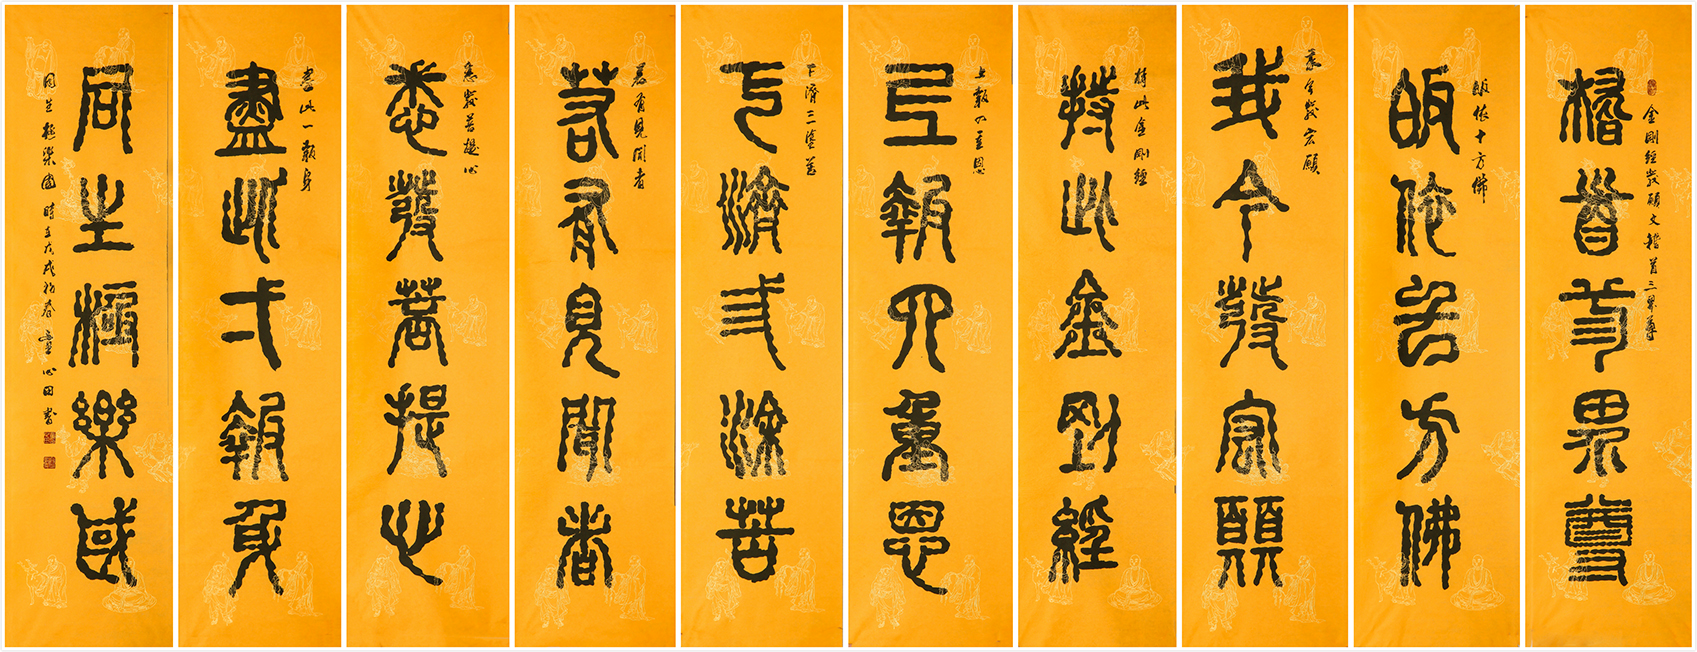 金剛經發願文 稽首三界尊
稽首三界尊
皈依十方佛
皈依十方佛
我今發宏願
我今發宏願
持此金剛經
持此金剛經
上報四重恩
上報四重恩
下濟三塗苦
下濟三塗苦
若有見聞者
若有見聞者
悉發菩提心
悉發菩提心
盡此一報身
盡此一報身
同生極樂國
同生極樂國 時在戊戌初春 心田書